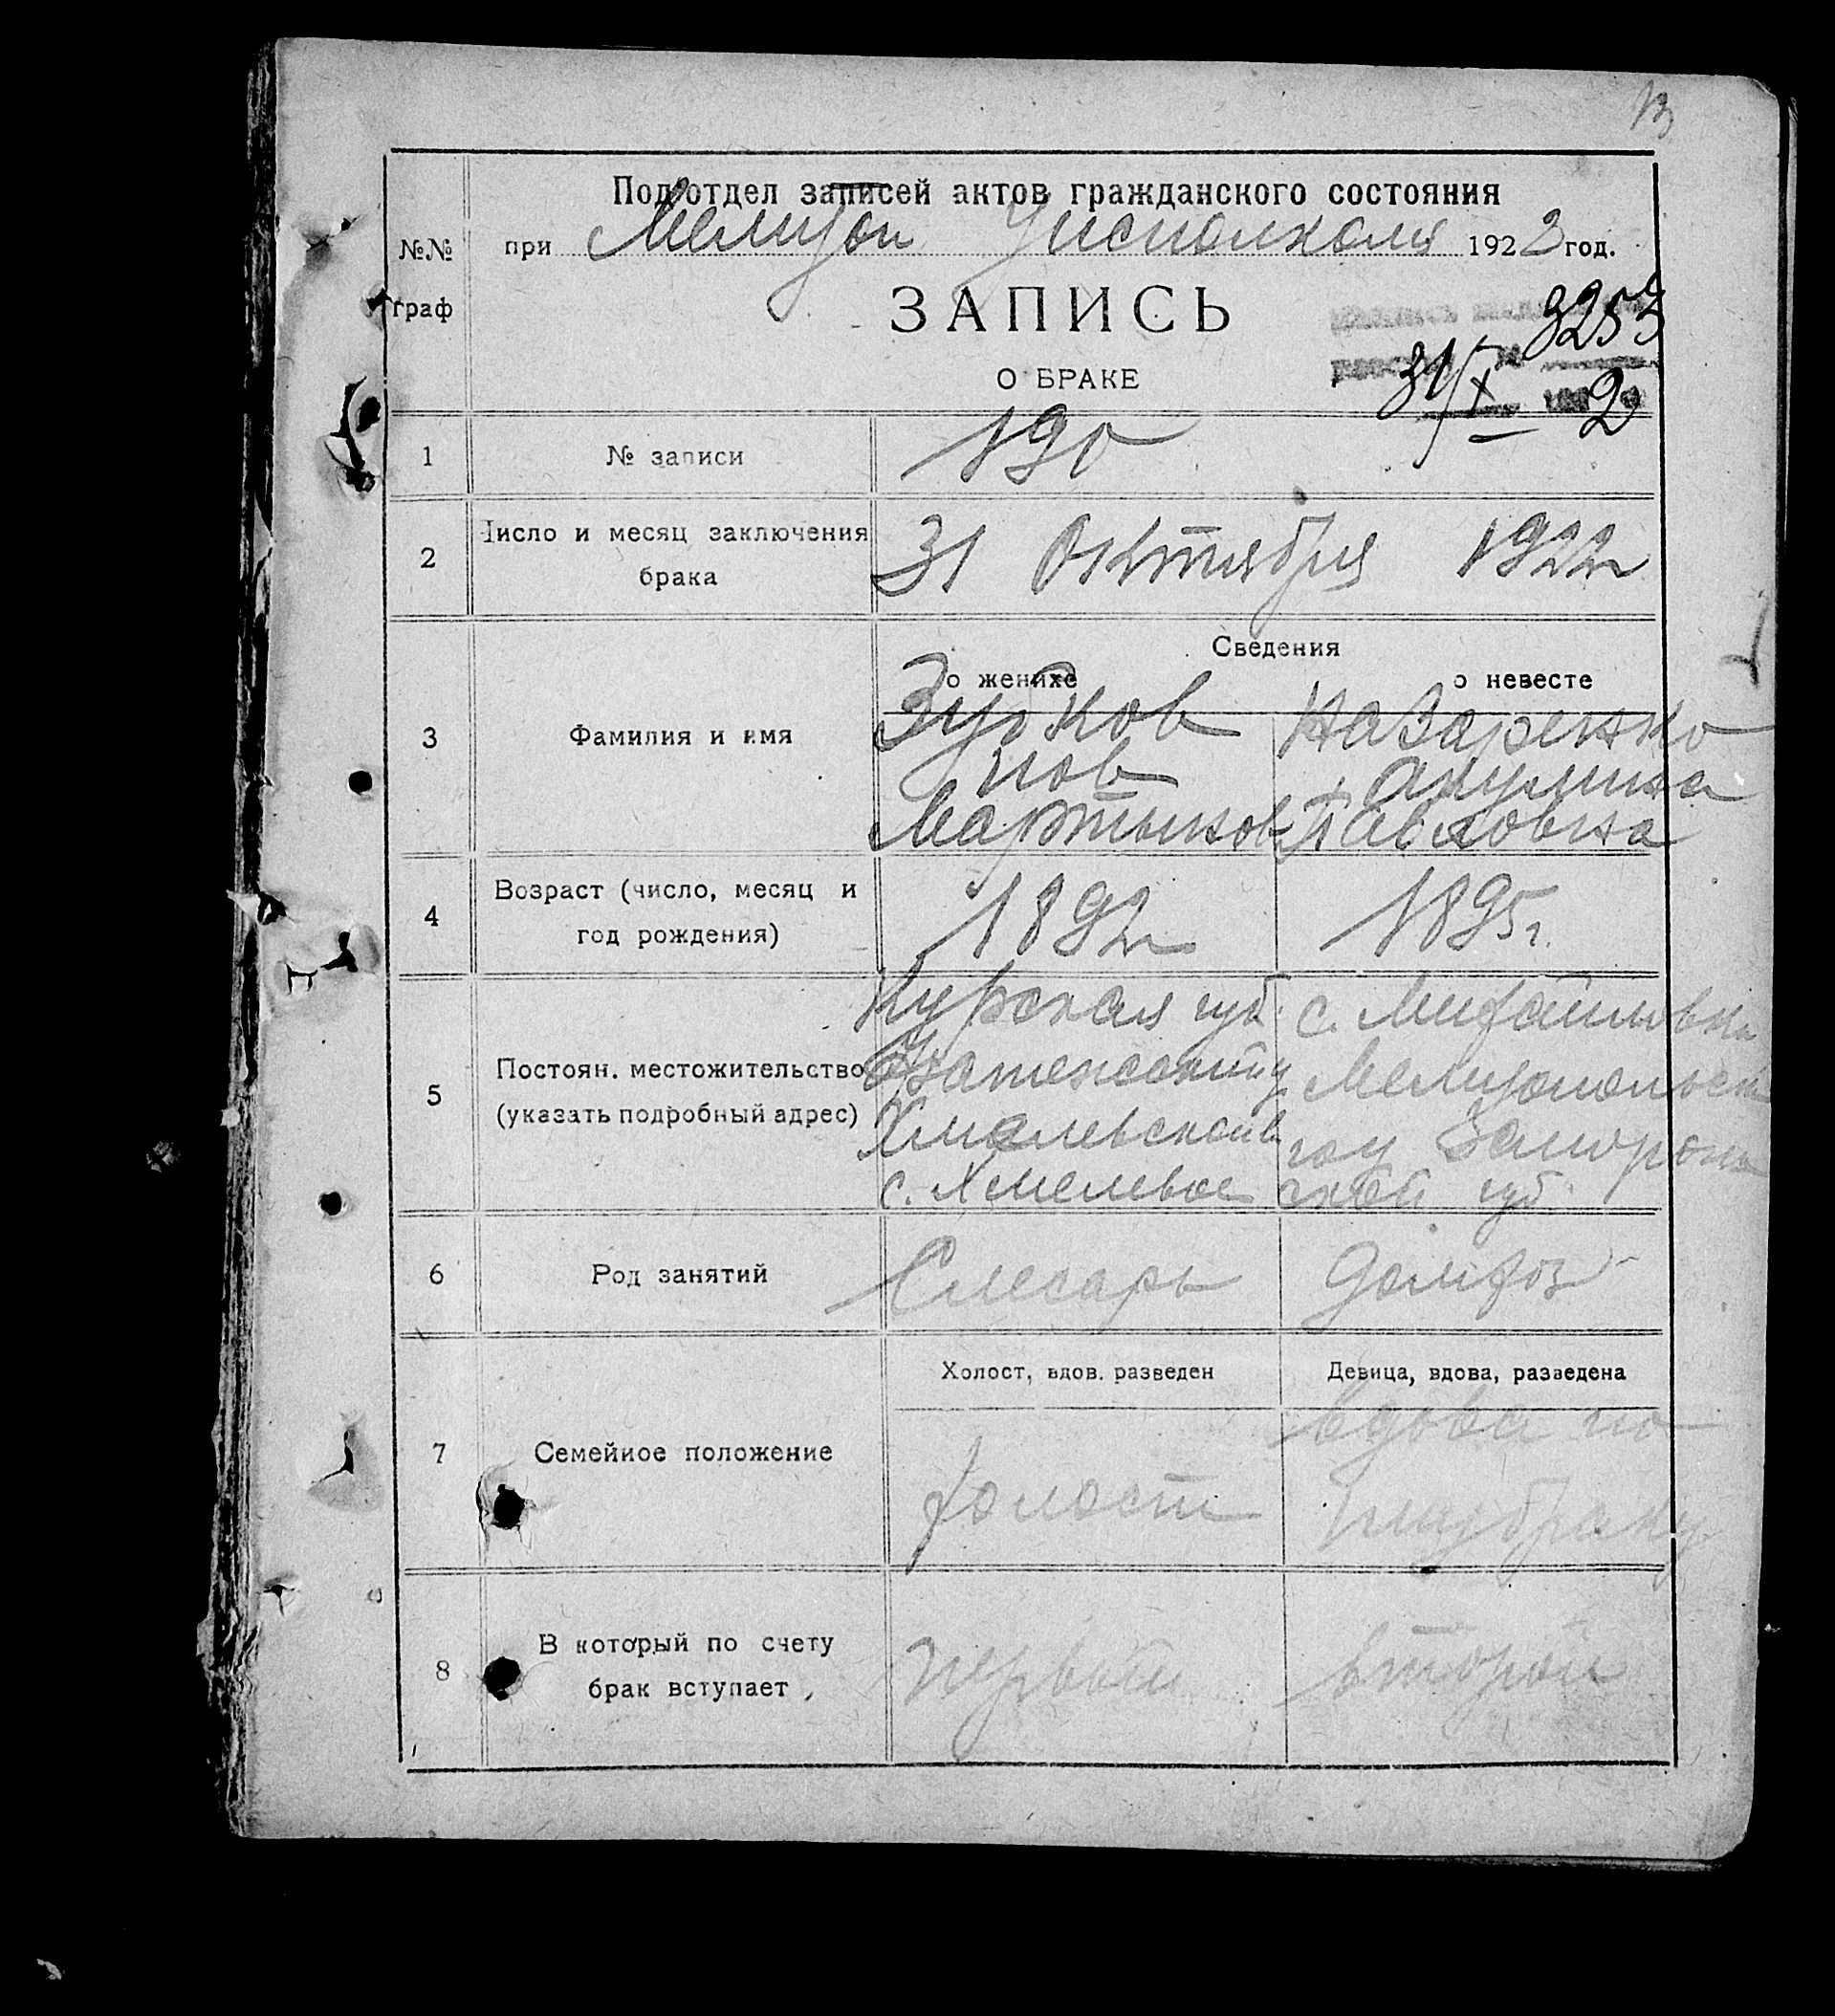 Подотдел записей актов гражданского состояния
№№ граф
при Мелитоп Уисполкома 1922 год.
ЗАПИСЬ
О БРАКЕ
3253
31/X 2
1 № записи 190
2 Число и месяц заключения брака 31 Октября 1922г
Сведения
о женихе о невесте
3 Фамилия и имя
Зубков Назаренко
Иов Акулина
Мартынов Павловна
4 Возраст (число, месяц и год рождения) 1892г 1895г.
5 Постоян. местожительство (указать подробный адрес)
Курская губ с. Михайловка
у Мелитопольск
Хмелевской в гоу Запорож
с. Хмелевое ской губ
6 Род занятий Слесарь Домхоз
Холост, вдов. разведен Девица, вдова, разведена
7 Семейное положение
вдова по
холост браку
8 В который по счету брак вступает первый второй